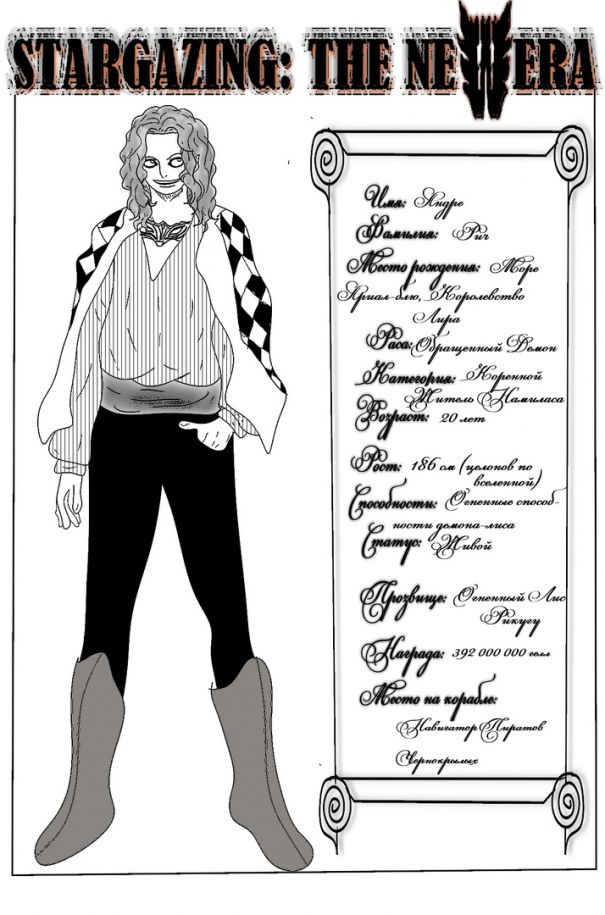 STARGAZING: THE NEW ERA
Имя: Андре
Фамилия: Рич
Место рождения: Море
Ариал-блю, Королевство
Лира
Раса: Обращенный Демон
Категория: Коренной
Житель Намиласа
Возраст: 20 лет
Рост: 186 см (целонов по
вселенной)
Способности: Огненные способ-
ности демона-лиса
Статус: Живой
Прозвище: Огненный Лис
Рикугу
Награда: 392 000 000 гелл
Место на корабле:
Навигатор Пиратов
Чернокрылых